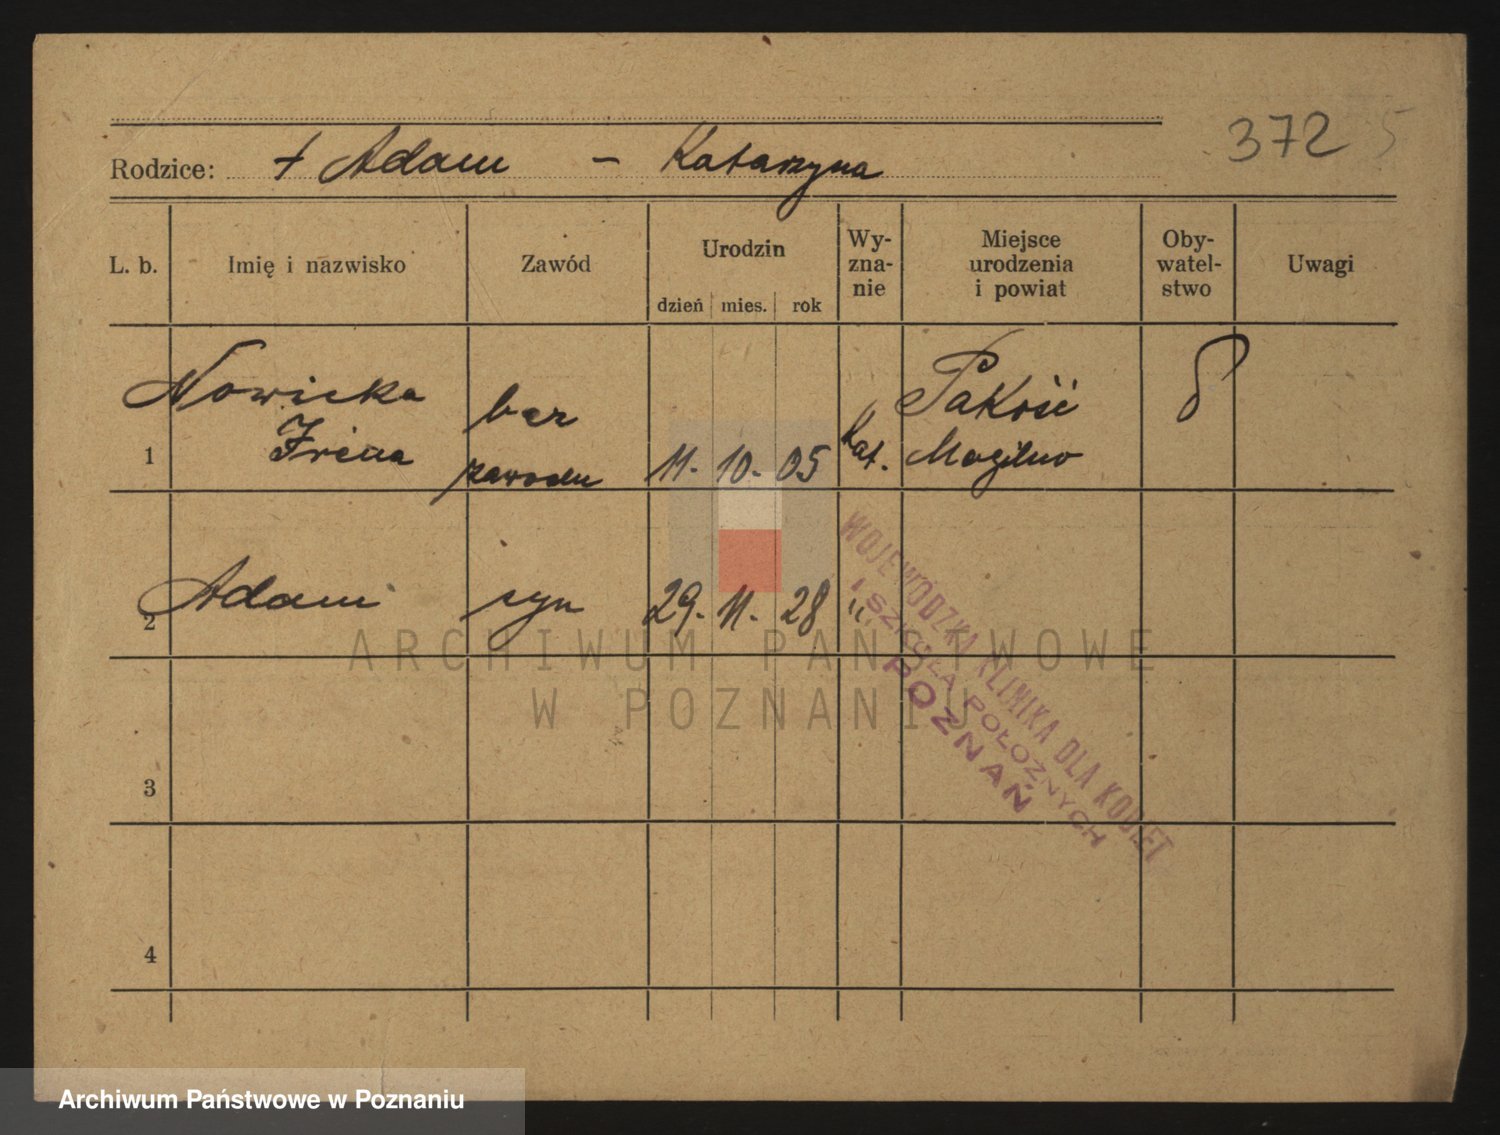 3725
Rodzice: + Adam – Katarzyna
L. b.
Imię i nazwisko
Zawód
Urodzin
dzień
mies.
rok
Wy-
zna-
nie
Miejsce
urodzenia
i powiat
Oby-
watel-
stwo
Uwagi
1
Nowicka
Irena
bez
zawodu
11. 10. 05
Kat.
Pakość
Mogilno
2
Adam
syn
29. 11. 28
"
3
4
WOJEWÓDZKA KLINIKA DLA KOBIET
I SZKOŁA POŁOŻNYCH
POZNAŃ
ARCHIWUM PAŃSTWOWE
W POZNANIU
Archiwum Państwowe w Poznaniu